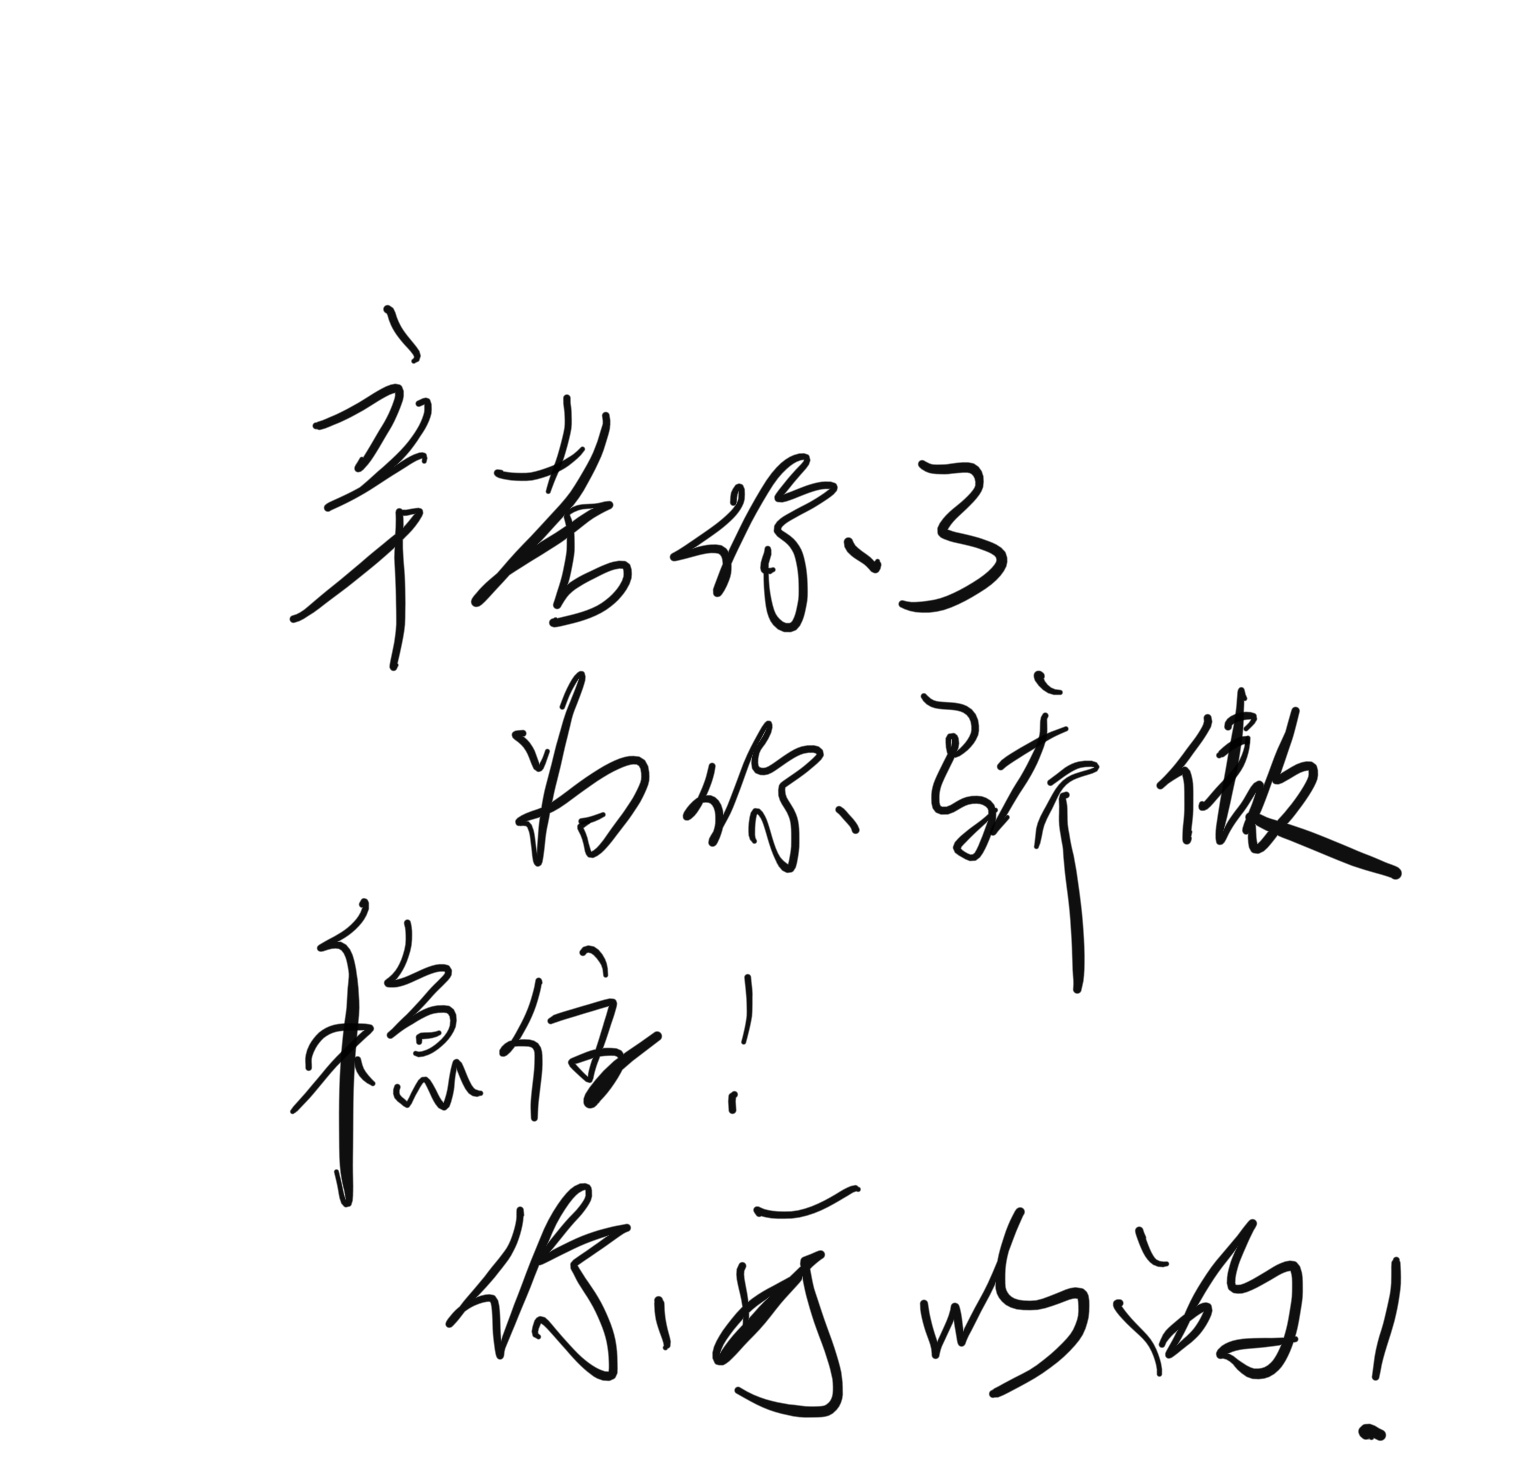 辛苦你了
为你骄傲
稳住！
你可以的！